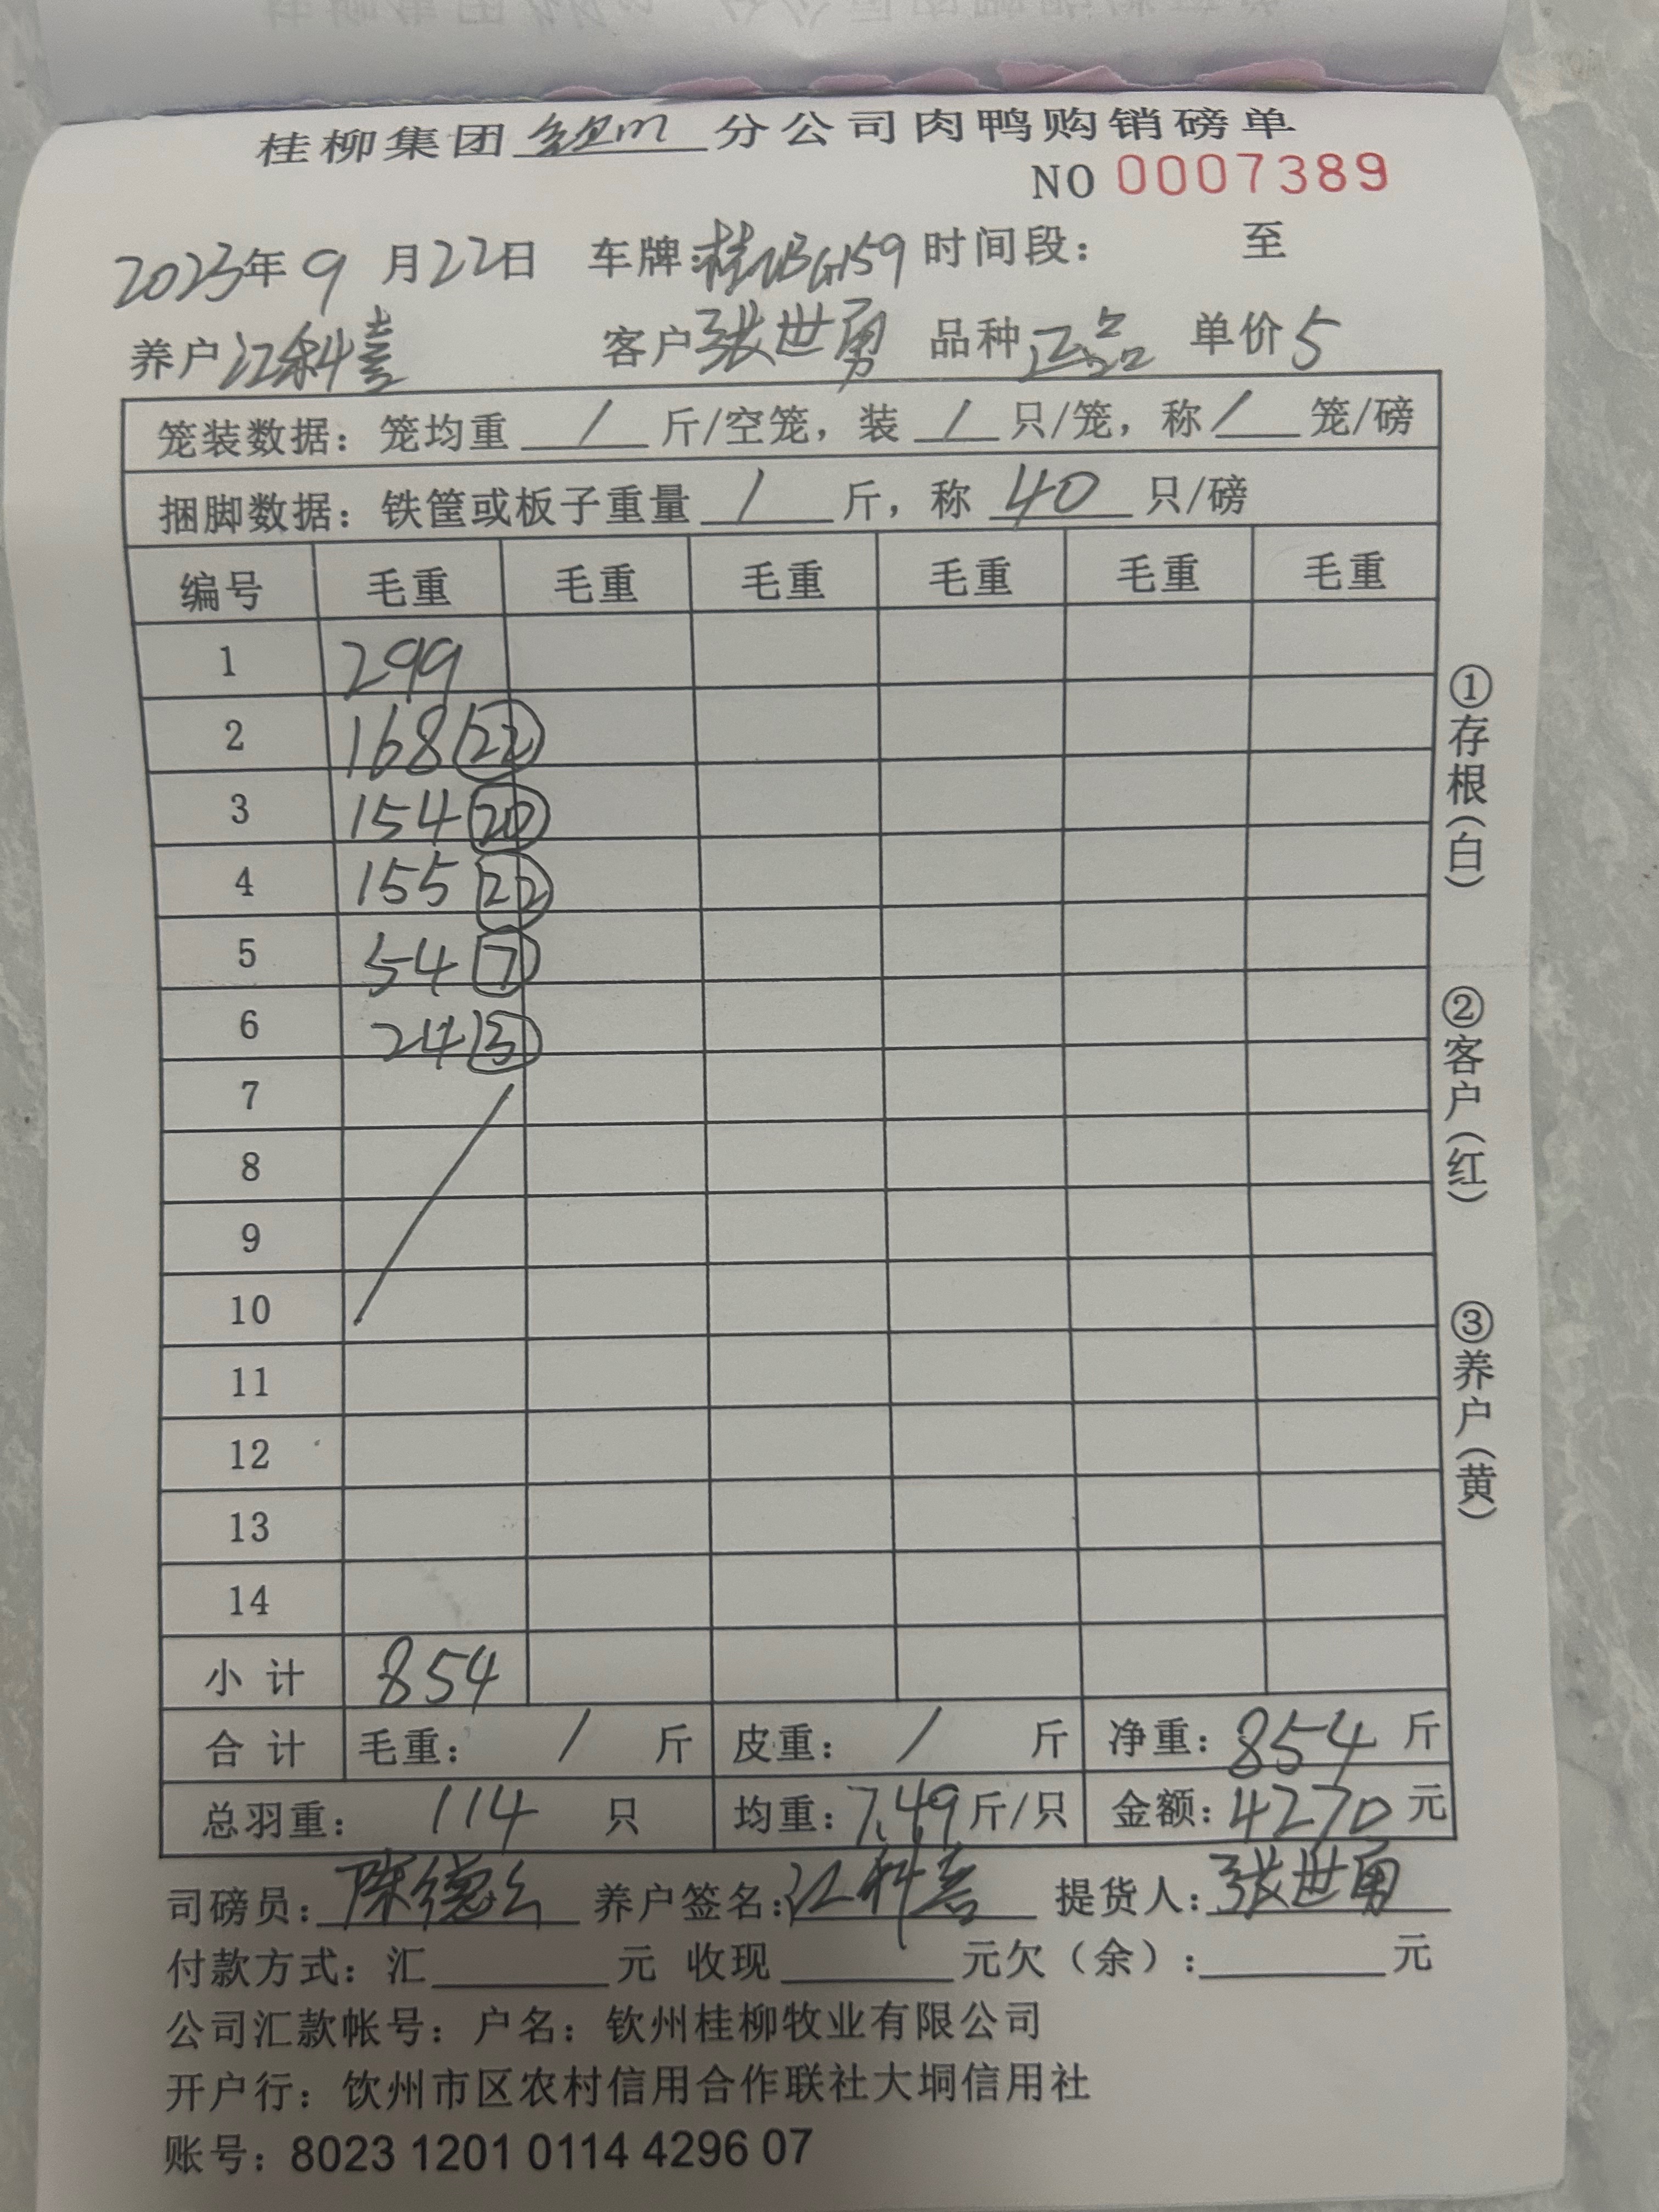 桂柳集团 分公司肉鸭购销磅单
NO 0007389
2023年9月22日 车牌: 时间段： 至
养户 江科喜 客户 张世勇 品种 正品 单价 5
笼装数据：笼均重 / 斤/空笼，装 / 只/笼，称 / 笼/磅
捆脚数据：铁筐或板子重量 / 斤，称 40 只/磅
编号 毛重 毛重 毛重 毛重 毛重 毛重
1 299
2 168 22
3 154 20
4 155 22
5 54 7
6 24
7
8
9
10
11
12
13
14
小计 854
合计 毛重： / 斤 皮重： / 斤 净重：854 斤
总羽重： 114 只 均重：7.49 斤/只 金额：4270 元
司磅员: 陈德 养户签名:江科喜 提货人:张世勇
付款方式：汇 元 收现 元欠（余）: 元
公司汇款帐号：户名：钦州桂柳牧业有限公司
开户行：饮州市区农村信用合作联社大垌信用社
账号：8023 1201 0114 4296 07
①存根（白）
②客户（红）
③养户（黄）